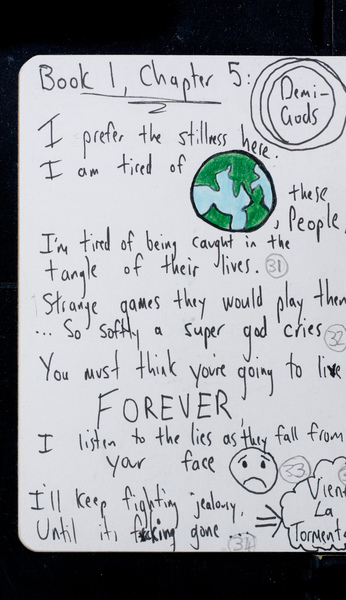 Book 1, Chapter 5:
Demi-
Gods
I prefer the stillness here.
I am tired of
these
, People,
I'm tired of being caught in the
tangle of their lives. 31
Strange games they would play then
... So softly a super god cries 32
You must think you're going to live
FOREVER
I listen to the lies as they fall from
your face 33
I'll keep fighting jealousy,
Until it's f**king gone ... 34
Vient
La
Torment